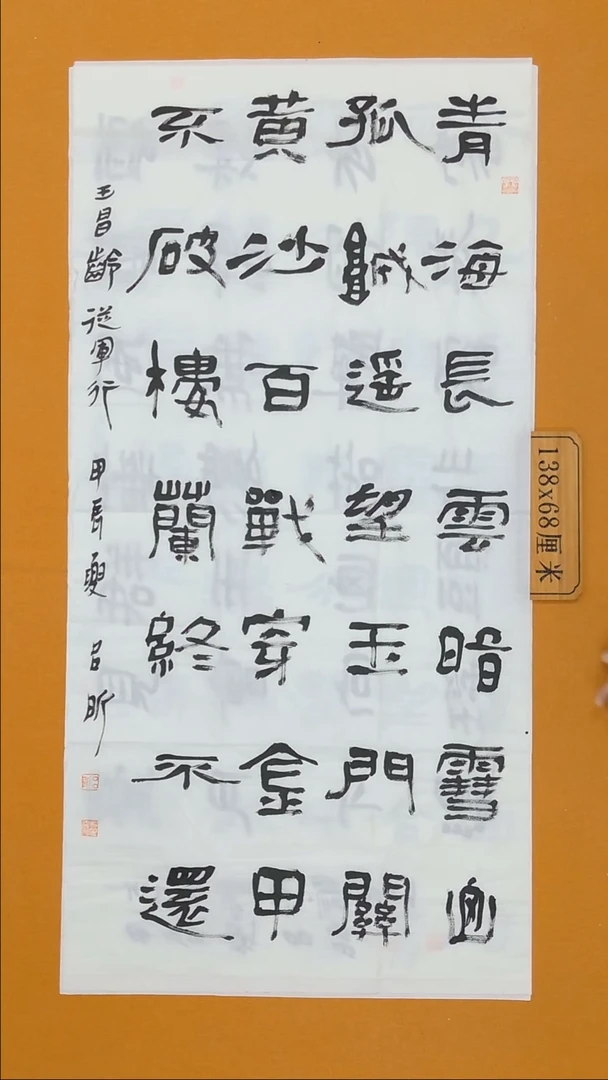 青海長雲暗雪山
孤城遥望玉門關
黄沙百戰穿金甲
不破樓蘭終不還
王昌齡從軍行 甲辰夏 吕昕
138x68厘米